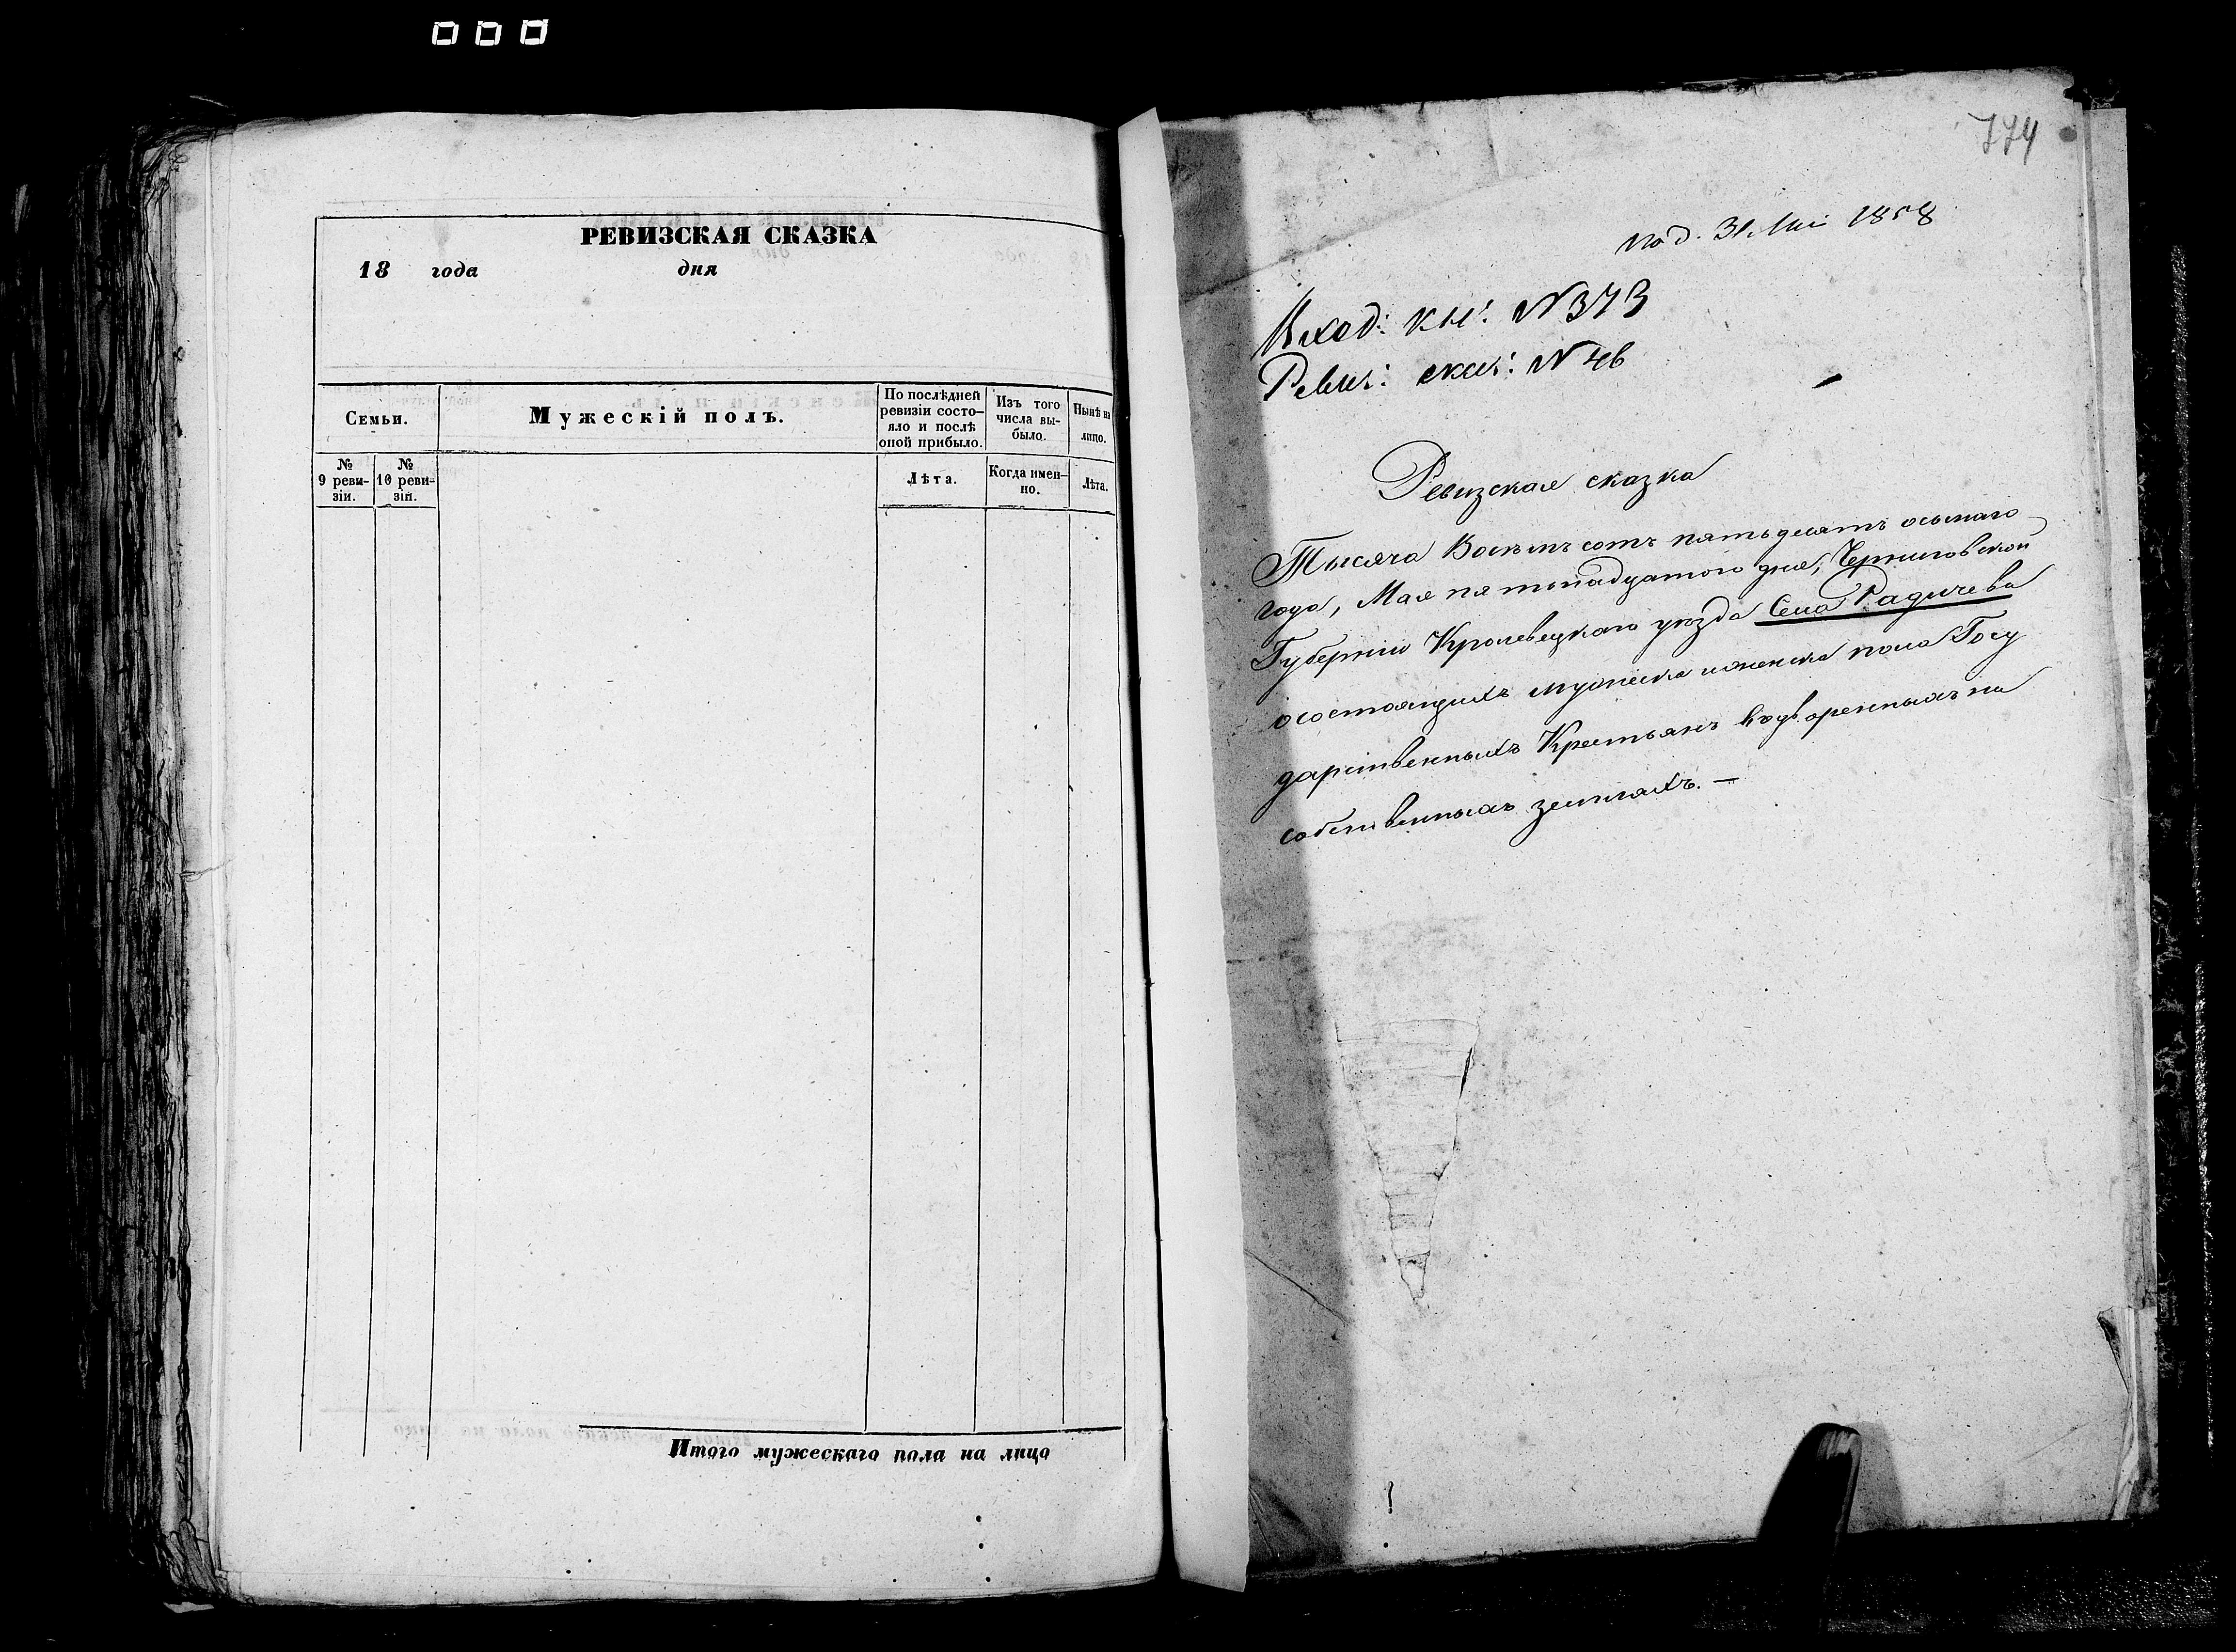 РЕВИЗСКАЯ СКАЗКА
18 года дня
Семьи.
Мужескій полъ.
По послѣдней
ревизіи состо-
яло и послѣ
оной прибыло.
Изъ того
числа вы-
было.
Нынѣ на
лицо.
№
9 реви-
зіи.
№
10 реви-
зіи.
Лѣта.
Когда имен-
но.
Лѣта.
Итого мужескаго пола на лицо
774
под. 31 Маі 1858
Вход: кн: N 373
Ревиз: сказ: N 46
Ревизская сказка
Тысяча Восемьсотъ пятьдесятъ осьмаго
года, Мая пятьнадцатого дня, Черниговской
Губерніи Кролевецкаго уѣзда Села Радичева
осостоящихъ мужеска иженска пола Госу
дарственныхъ Крестьянъ водворенныхъ на
собственныхъ земляхъ. —